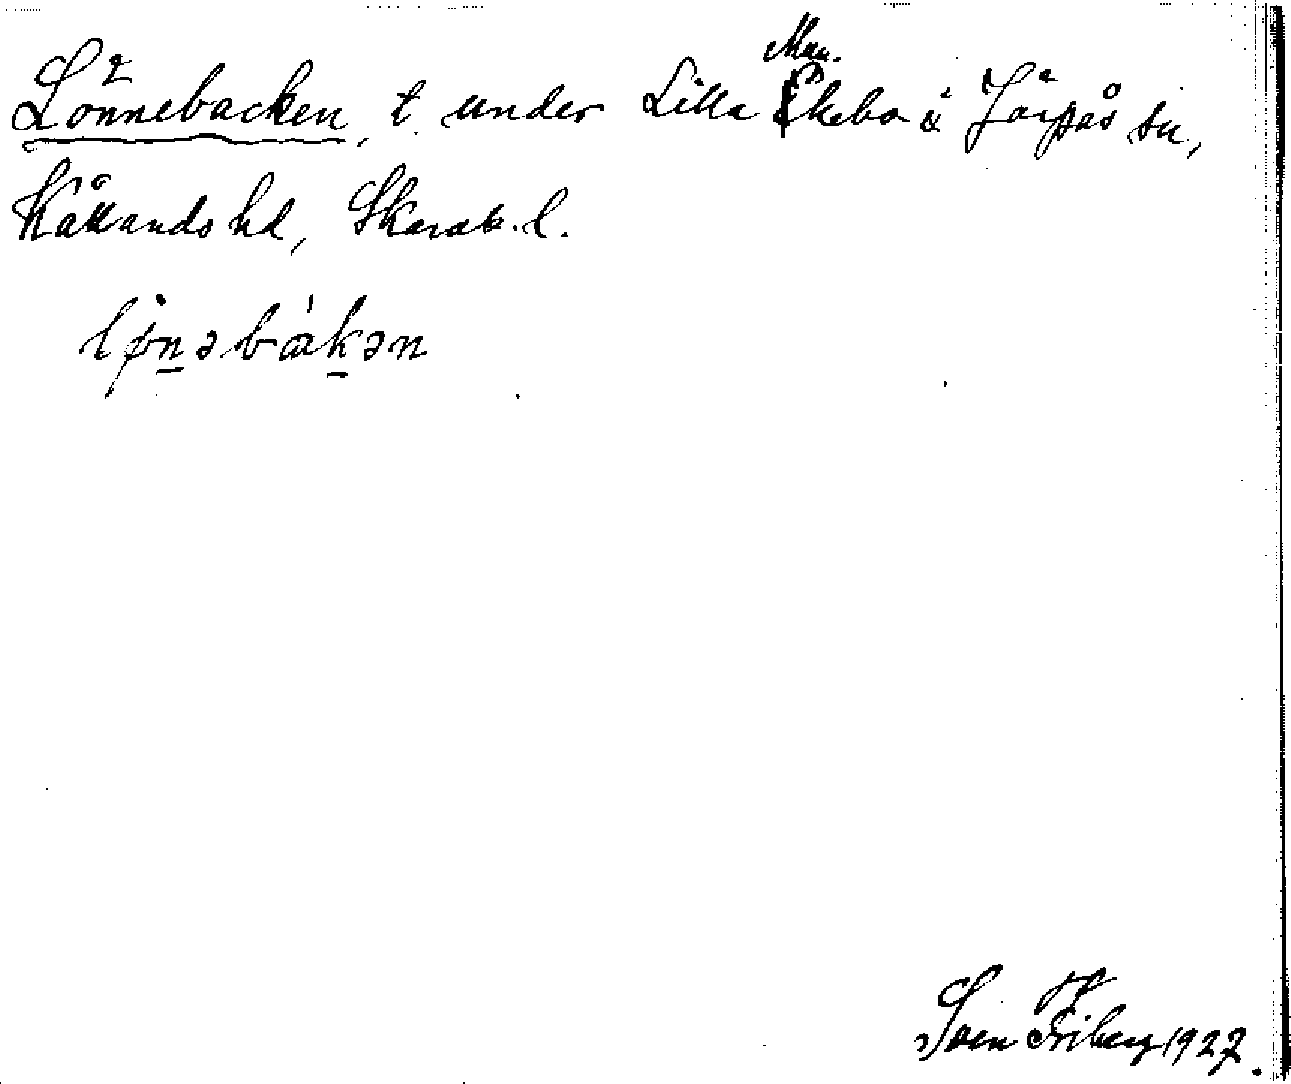 Man.
Lönnebacken, t. under Lilla Ekebo i Järpås sn,
Kållands hd, Skarab. l.
lønəbàkən
Sven Friberg 1927.